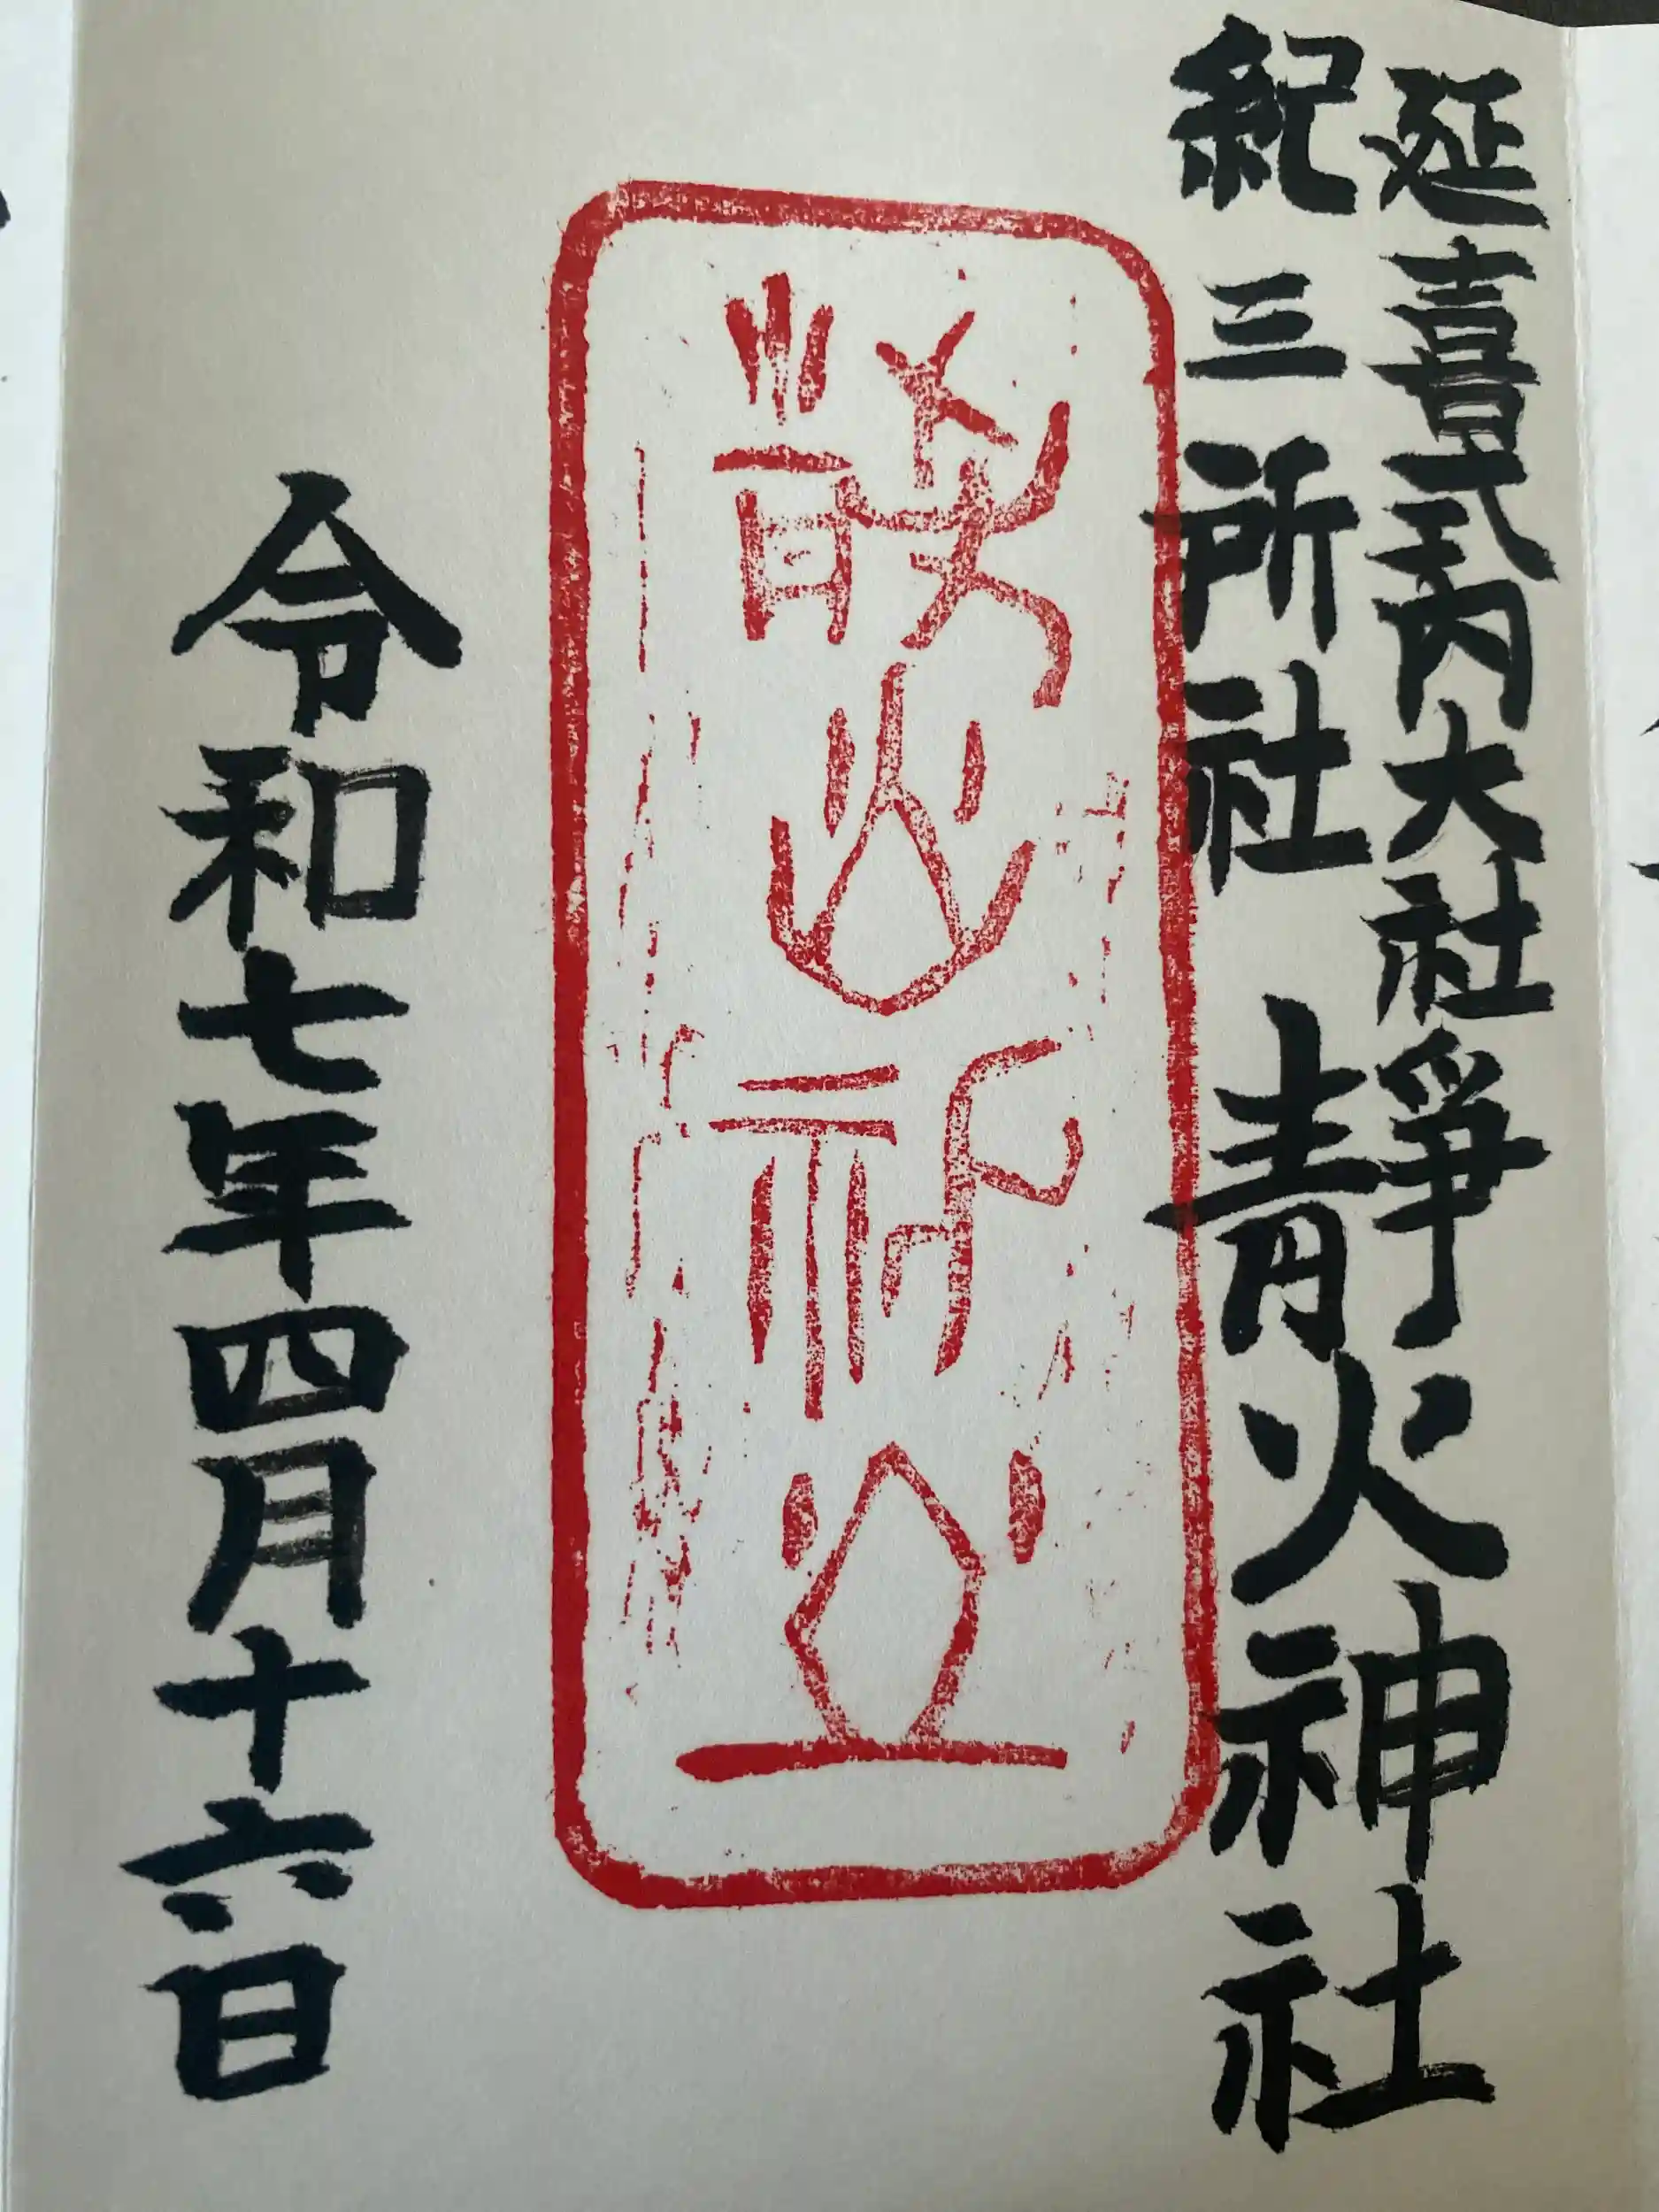 延喜式内大社
紀三所社
靜火神社
令和七年四月十六日